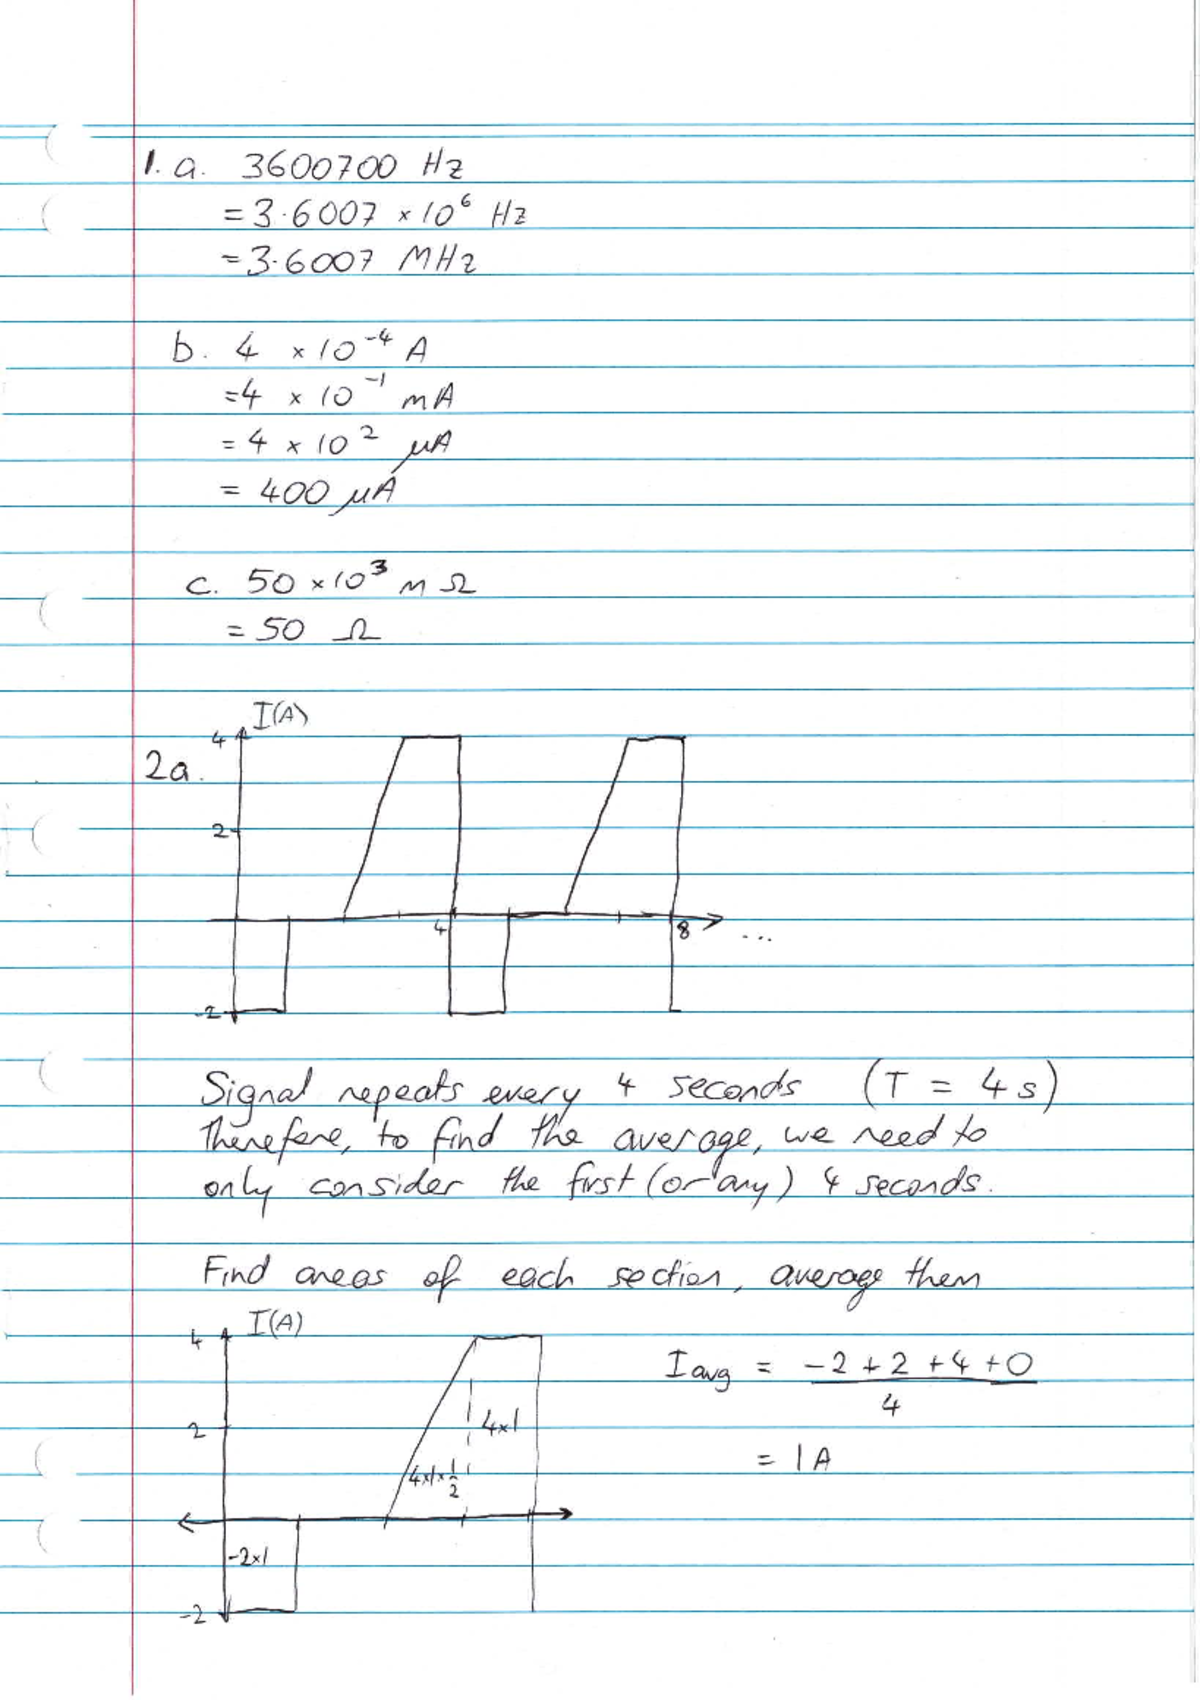 1. a. 3600700 Hz
= 3.6007 × 10⁶ Hz
= 3.6007 MHz
b. 4 × 10⁻⁴ A
= 4 × 10⁻¹ mA
= 4 × 10² μA
= 400 μA
c. 50 × 10³ m Ω
= 50 Ω
I(A)
4
2a.
2
4
8
...
-2
Signal repeats every 4 seconds (T = 4 s)
Therefore, to find the average, we need to
only consider the first (or any) 4 seconds.
Find areas of each section, average them
I(A)
4
I avg = -2 + 2 + 4 + 0
4
2
4×1
= 1 A
4×1×½
-2×1
-2